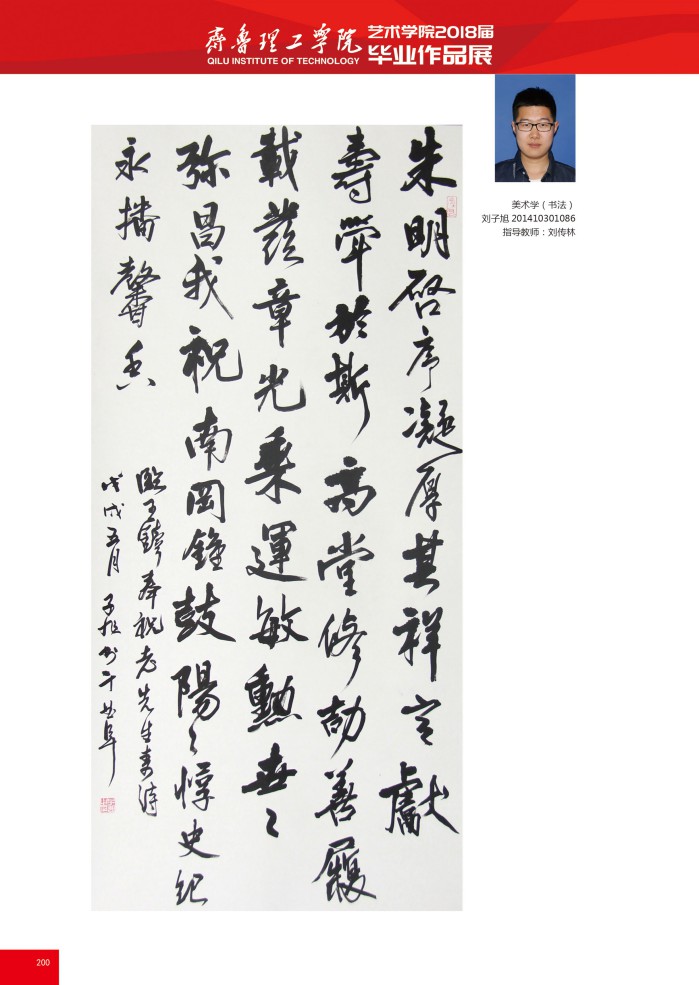 齊魯理工學院
QILU INSTITUTE OF TECHNOLOGY
艺术学院2018届
毕业作品展
美术学（书法）
刘子旭 201410301086
指导教师：刘传林
朱明啓序凝厚其祥言獻
壽犖於斯高堂修劼善履
載發章光乘運敏勳世〻
弥昌我祝南岡鐘鼓陽〻惇史紀
永播馨香
臨王鐸奉祝老先生壽詩
戊戌五月子旭书于曲阜
200